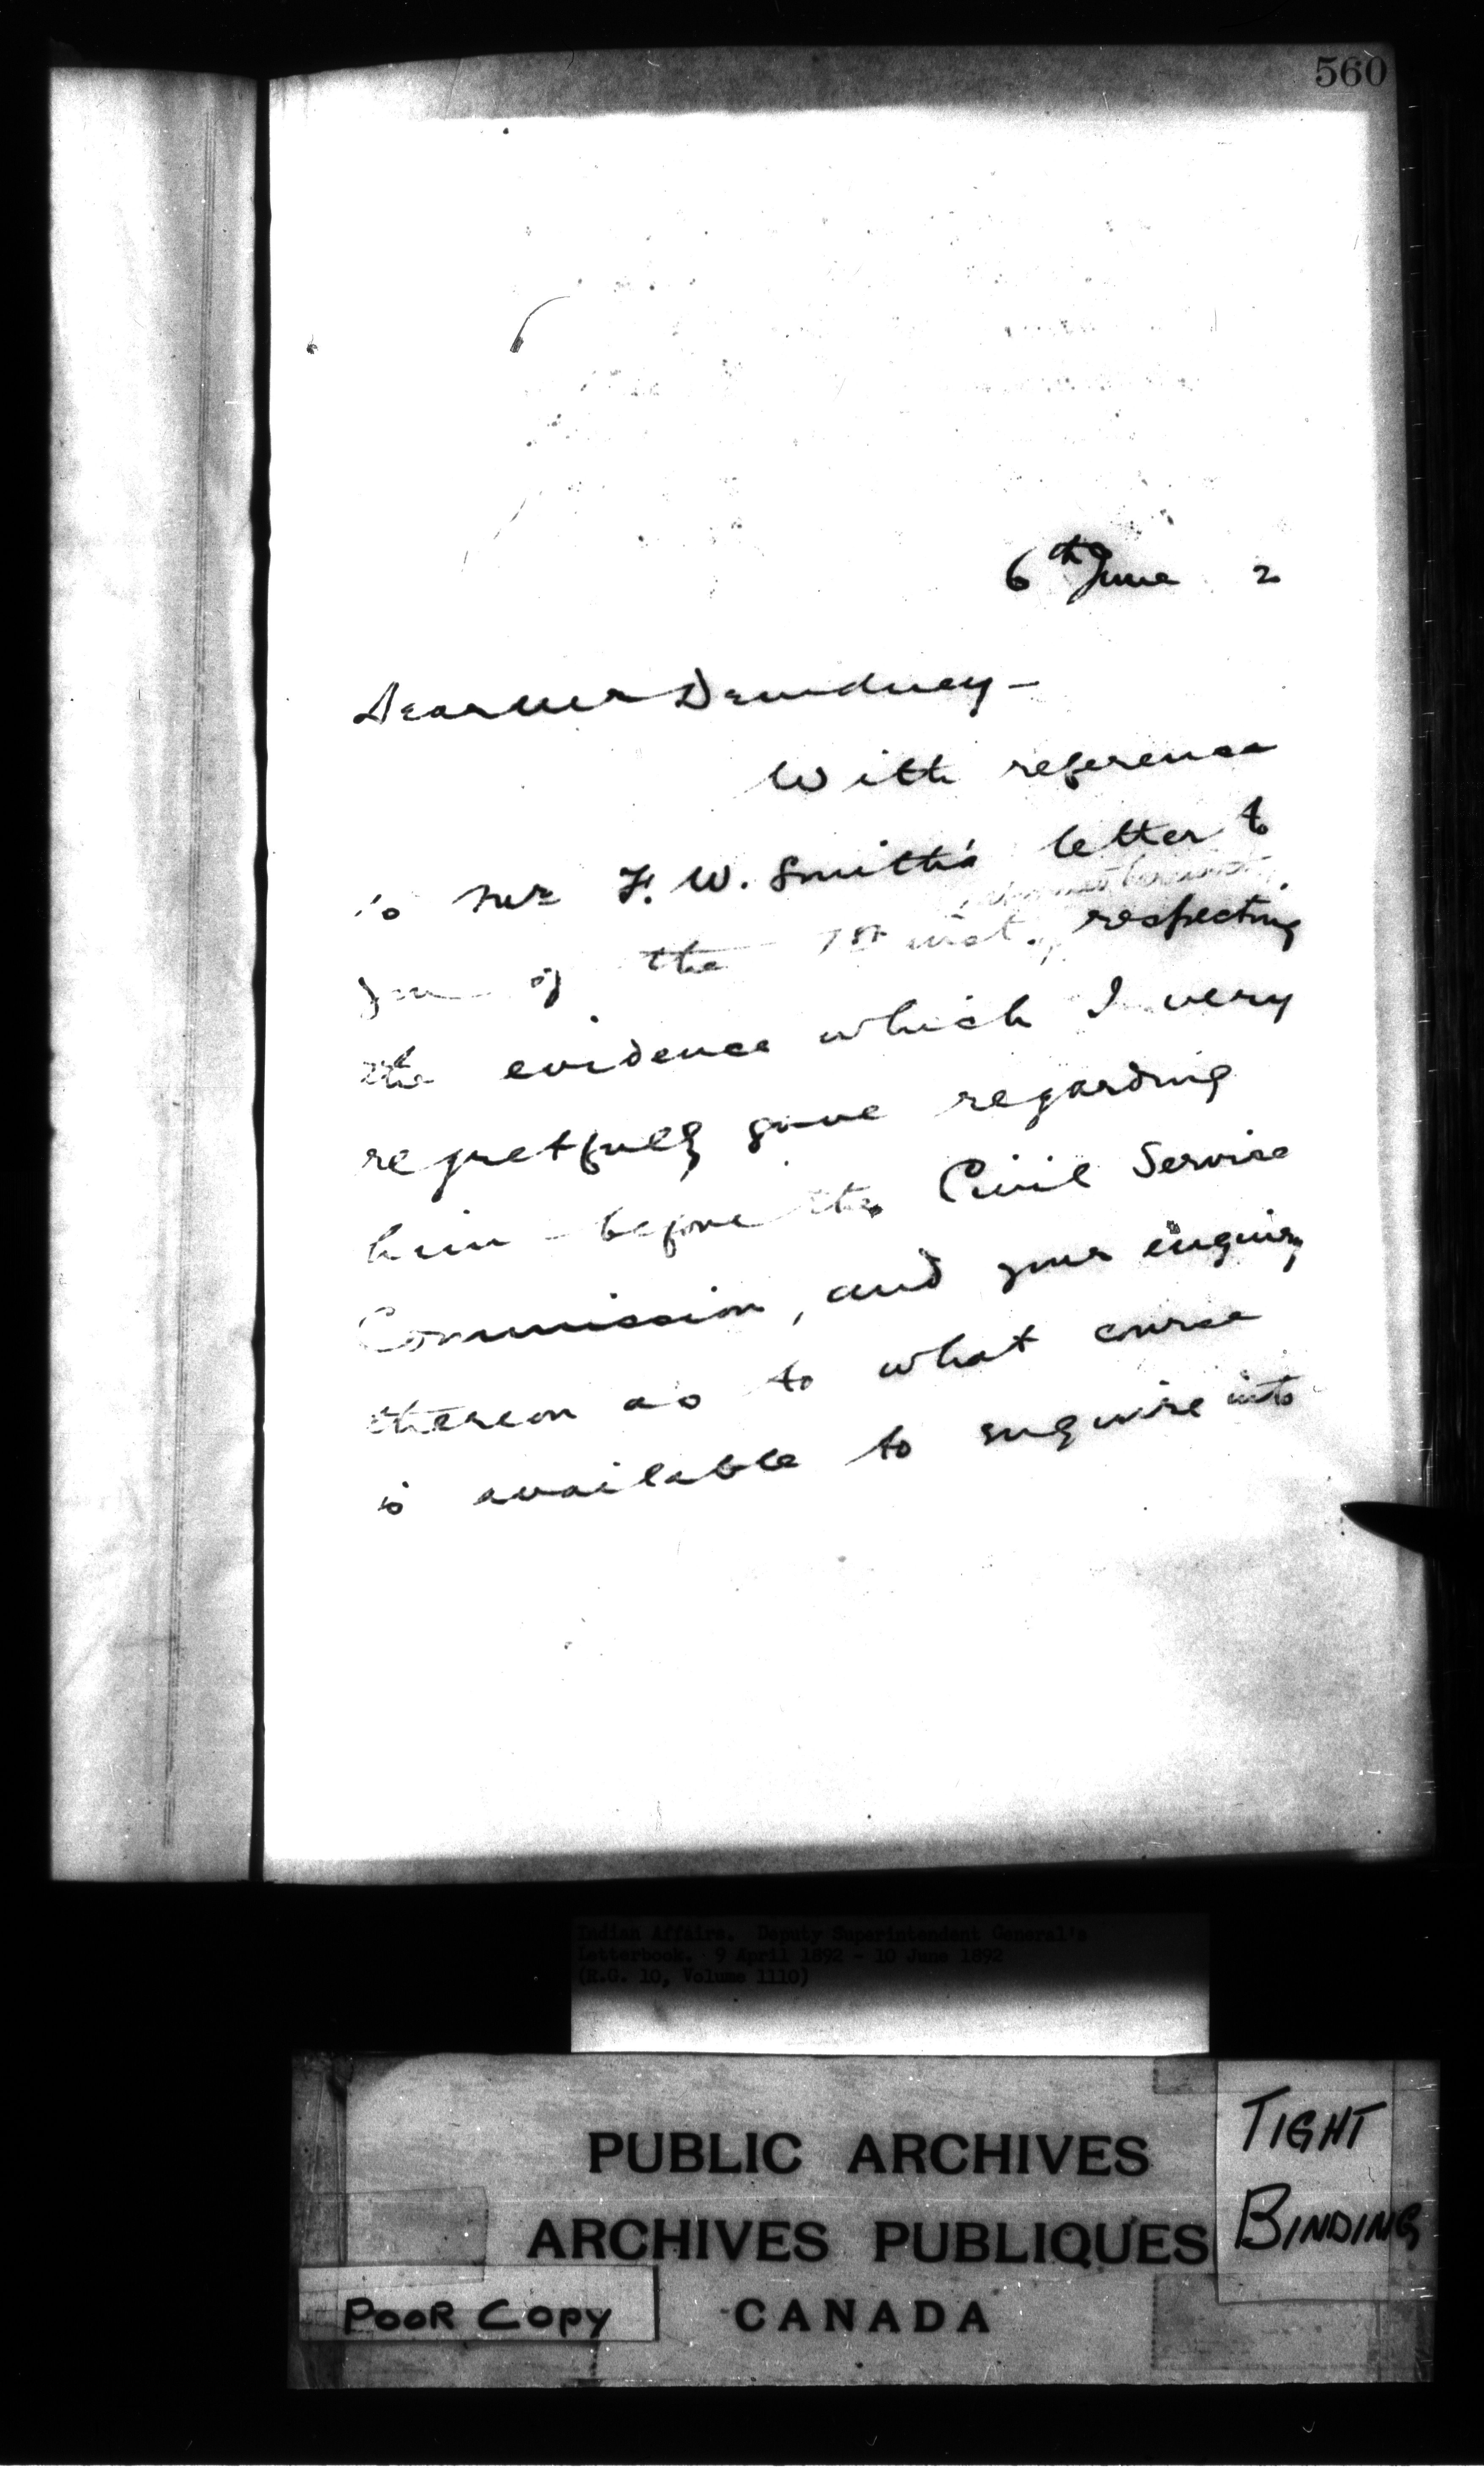 560
6th June 2
Dear Mr Dewdney –
With reference
to Mr F. W. Smith's letter to
you of the 1st inst., respecting
the evidence which I very
regretfully gave regarding
him before the Civil Service
Commission, and your enquiry
thereon as to what course
is available to enquire into
Indian Affairs. Deputy Superintendent General's
Letterbook. 9 April 1892 - 10 June 1892
(R.G. 10, Volume 1110)
PUBLIC ARCHIVES
ARCHIVES PUBLIQUES
CANADA
TIGHT
BINDING
POOR COPY